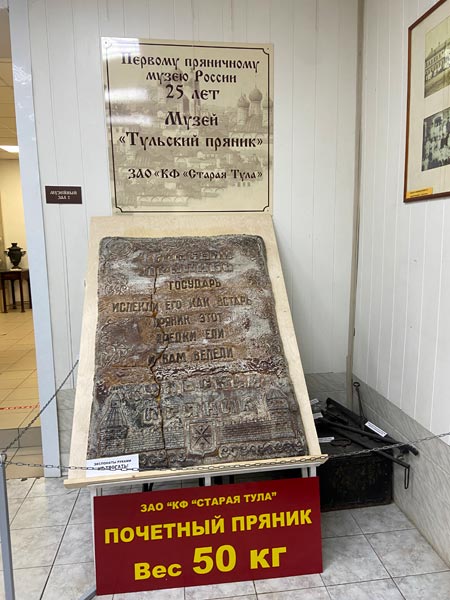 Первому пряничному
музею России
25 лет
Музей
«Тульский пряник»
ЗАО «КФ «Старая Тула»
МУЗЕЙНЫЙ
ЗАЛ 1
ГОСУДАРЬ
ИСПЕКЛИ ЕГО КАК ВСТАРЬ
ПРЯНИК ЭТОТ
ПРЕДКИ ЕЛИ
ВАМ ВЕЛЕЛИ
ЭКСПОНАТЫ РУКАМИ
НЕ ТРОГАТЬ!
ЗАО "КФ "СТАРАЯ ТУЛА"
ПОЧЕТНЫЙ ПРЯНИК
Вес 50 кг